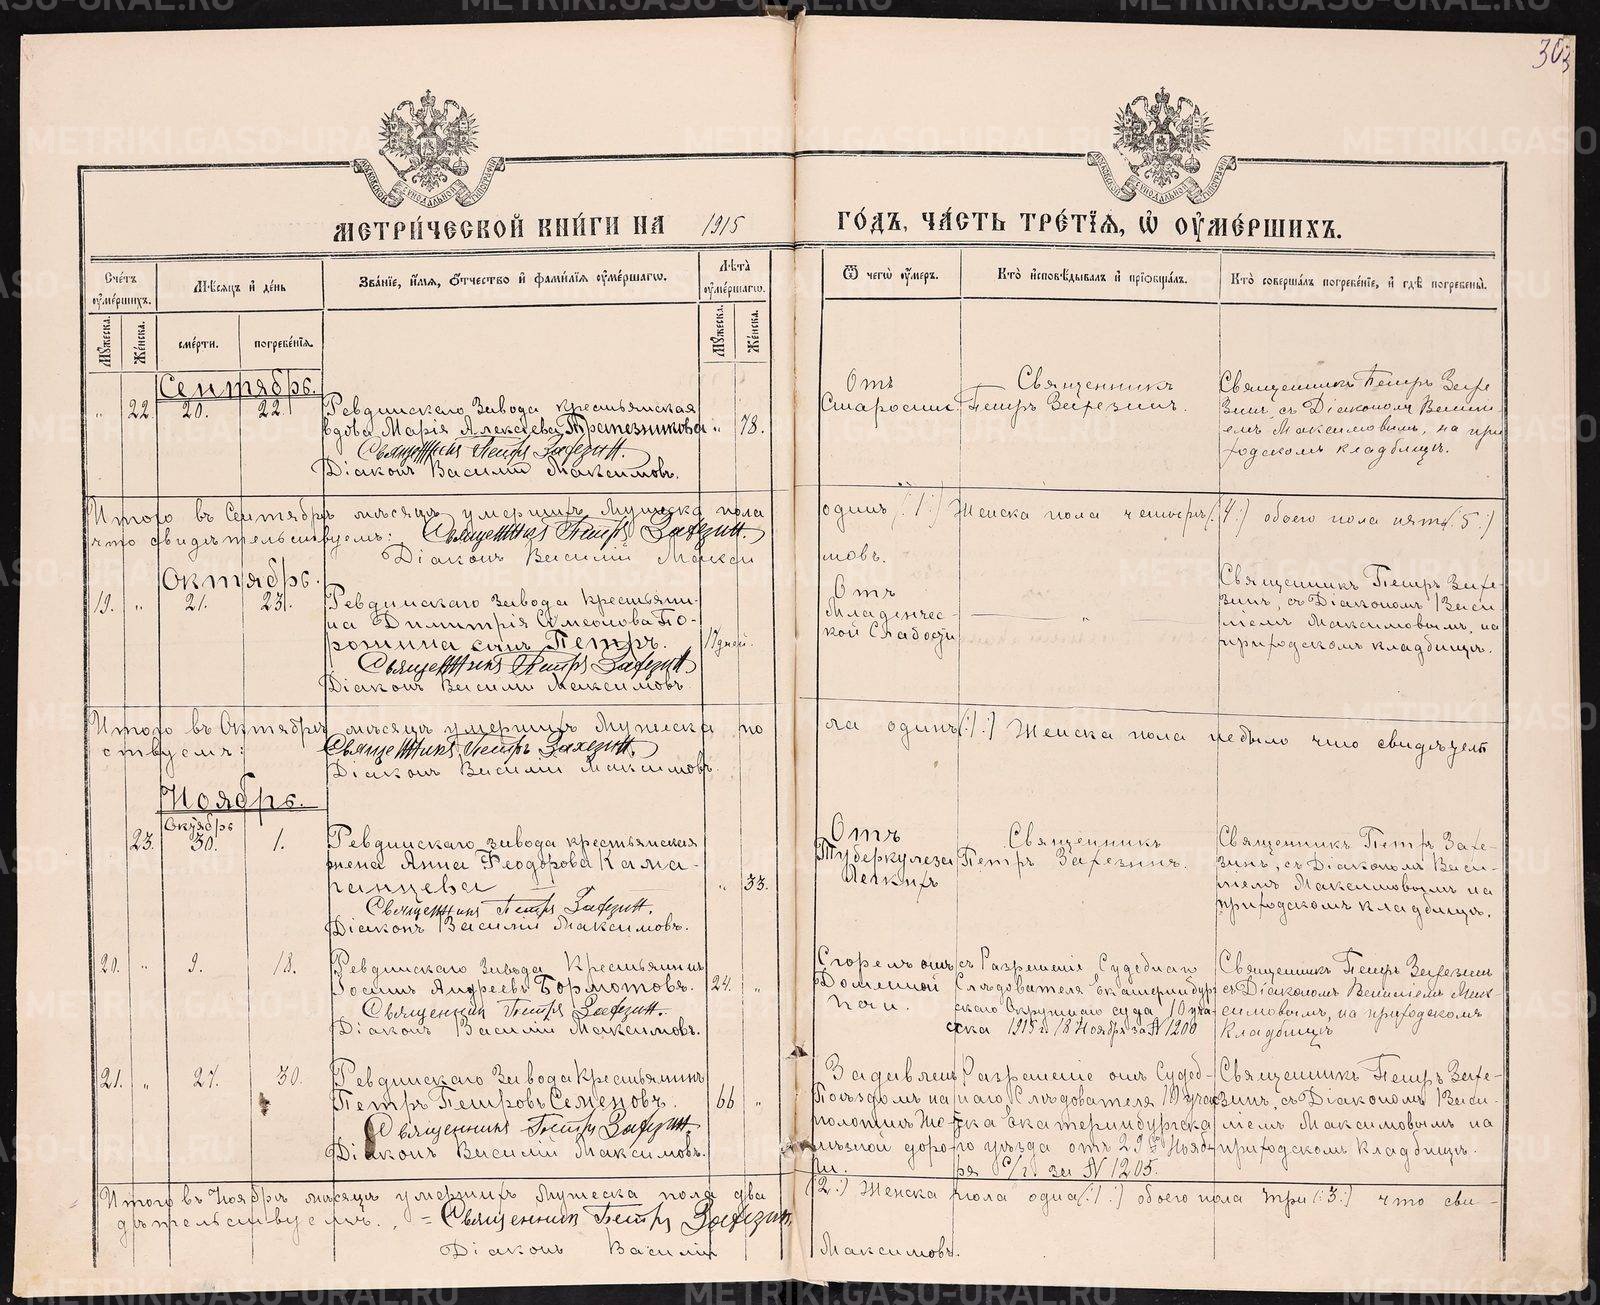 303
МЕТРИ́ЧЕСКОЙ КНИ́ГИ НА 1915 ГО́ДЪ, ЧА́СТЬ ТРЕ́ТЇѦ, Ѡ ОУМЕ́РШИХЪ.
Сче́тъ оуме́ршихъ.
Мѣ́сяцъ и де́нь
Зва́нїе, и́мя, о́тчество и фами́лїя оуме́ршагѡ.
Лѣ́та оуме́ршагѡ.
Ѿ чегѡ̀ оу́меръ.
Кто̀ исповѣ́дывалъ и прїѡбща́лъ.
Кто̀ соверша́лъ погребе́нїе, и гдѣ̀ погребены̀.
Му́жеска.
Же́нска.
сме́рти.
погребе́нїя.
Му́жеска.
Же́нска.
Сентябрь.
" 22. 20. 22.
Ревдинскаго Завода крестьянская
вдова Марія Алексѣева Трапезникова
" 78.
Священникъ Петръ Захезин.
Діаконъ Василій Максимовъ.
Отъ
Старости.
Священникъ
Петръ Захезинъ.
Священникъ Петръ Захе
зинъ, съ Діакономъ Васил
емъ Максимовымъ, на при
ходскомъ кладбищѣ.
Итого въ Сентябрѣ мѣсяцѣ умершихъ Мужеска пола одинъ (:1:) Женска пола четыре (:4:) обоего пола пять (:5:)
что свидѣтельствуемъ: Священникъ Петръ Захезин.
Діаконъ Василій Максимовъ.
Октябрь.
19. " 21. 23.
Ревдинскаго Завода крестьяни-
на Димитрія Симеонова По-
ротина сынъ Петръ.
17 дней.
Священникъ Петръ Захезин
Діаконъ Василій Максимовъ
Отъ
Младенчес-
кой Слабости
"
Священникъ Петръ Захе-
зинъ, съ Діакономъ Васи-
ліемъ Максимовымъ, на
приходскомъ кладбищѣ.
Итого въ Октябрѣ мѣсяцѣ умершихъ Мужеска пола одинъ (:1:) Женска пола небыло что свидѣтель
ствуемъ: Священникъ Петръ Захезин.
Діаконъ Василій Максимовъ.
Ноябрь.
Октябрь
23. 30. 1.
Ревдинскаго завода крестьянская
жена Анна Ѳеодорова Кама-
ганцева
" 33.
Священникъ Петръ Захезин.
Діаконъ Василій Максимовъ.
Отъ
Туберкулеза
Легкихъ
Священникъ
Петръ Захезинъ.
Священникъ Петръ Захе-
зинъ, съ Діакономъ Васи-
ліемъ Максимовымъ на
приходскомъ кладбищѣ.
20. " 9. 18.
Ревдинскаго Завода Крестьянинъ
Іосифъ Андреевъ Бормотовъ.
24. "
Священник Петръ Захезин.
Діаконъ Василій Максимовъ.
Сгорелъ отъ
Доменной
Печи.
съ Разрешенія Судебнаго
Слѣдователя Екатеринбур
скаго Окружнаго суда 10 уча
стка 1915 г. 18 Ноября за № 1200
Священникъ Петръ Захезинъ
съ Діакономъ Василіемъ Мак-
симовымъ, на приходскомъ
кладбищѣ
21. " 27. 30.
Ревдинскаго Завода Крестьянинъ
Петръ Петровъ Семеновъ.
66 "
Священникъ Петръ Захезин
Діаконъ Василій Максимовъ.
Задавленъ
Поѣздомъ на
полотнѣ Же-
лѣзной доро-
ги.
Разрешеніе отъ Судеб-
наго Слѣдователя 10 учас
тка Екатеринбургска
го уѣзда отъ 29го Нояб-
ря с/г. за № 1205.
Священникъ Петръ Захе-
зинъ, съ Діакономъ Васи-
ліемъ Максимовымъ на
приходскомъ кладбищѣ.
Итого въ Ноябрѣ мѣсяцѣ умершихъ Мужеска пола два (2:) Женска пола одна (:1:) обоего пола три (:3:) что сви-
дѣтельствуемъ. = Священникъ Петръ Захезин
Діаконъ Василій Максимовъ.
METRIKI.GASO-URAL.RU